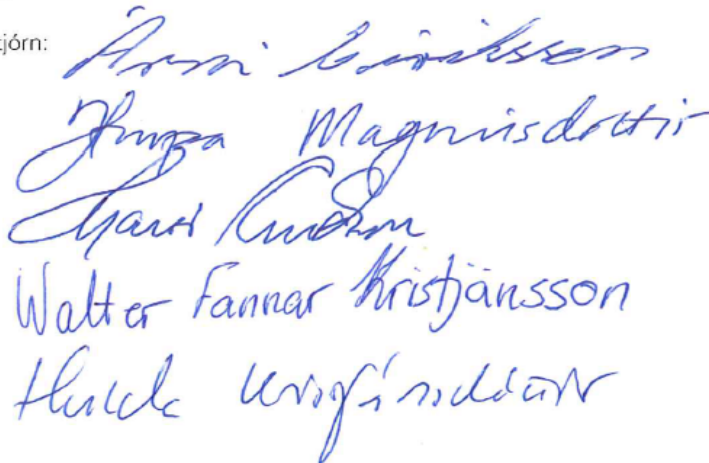 tjórn:
Árni Eiríksson
Magnúsdóttir
Walter Fannar Kristjánsson
Hulda Kristjánsdóttir